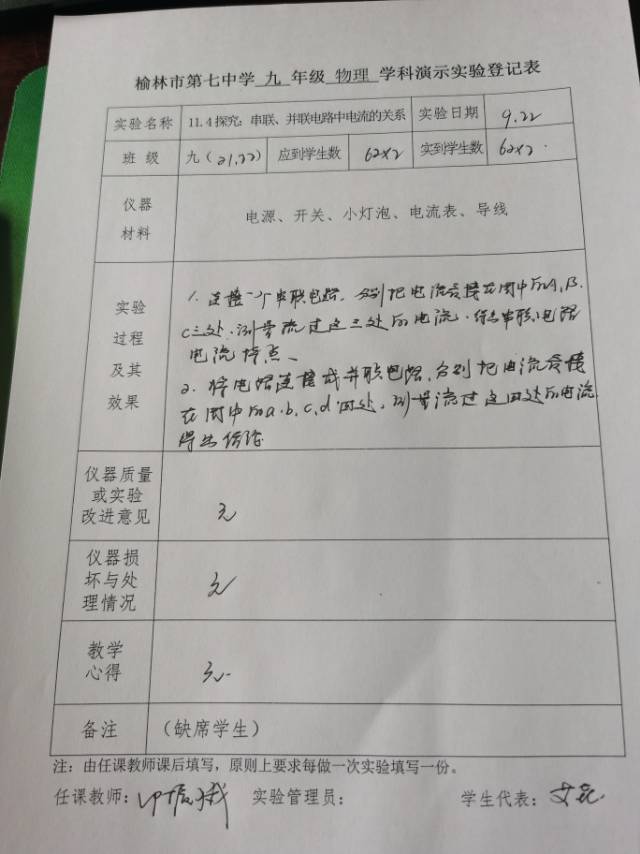 榆林市第七中学 九 年级 物理 学科演示实验登记表
实验名称 11.4 探究：串联、并联电路中电流的关系 实验日期 9.22
班 级 九（21,22） 应到学生数 62×2 实到学生数 62×2
仪器
材料
电源、开关、小灯泡、电流表、导线
实验
过程
及其
效果
1. 连接一个串联电路，分别把电流表接在图中的A,B.
C三处，测量流过这三处的电流，得出串联电路
电流特点、
2. 将电路连接成并联电路，分别把电流表接
在图中的a.b,c,d四处，测量流过这四处的电流
得出结论
仪器质量
或实验
改进意见
无
仪器损
坏与处
理情况
无
教学
心得
无.
备注 （缺席学生）
注：由任课教师课后填写，原则上要求每做一次实验填写一份。
任课教师： 实验管理员： 学生代表：